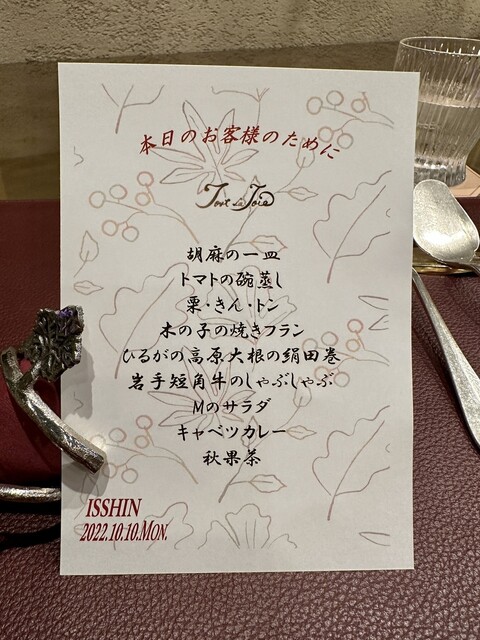 本日のお客様のために
Tort la Joie
胡麻の一皿
トマトの碗蒸し
栗・きん・トン
木の子の焼きフラン
ひるがの高原大根の絹田巻
岩手短角牛のしゃぶしゃぶ
Mのサラダ
キャベツカレー
秋果茶
ISSHIN
2022.10.10.MON.